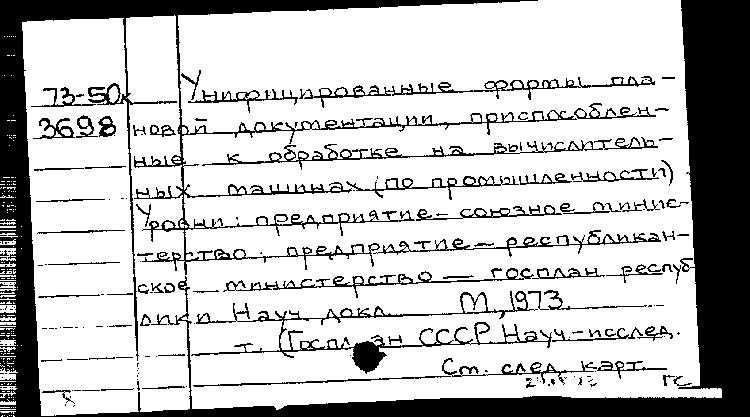 73-50к Унифицированные формы пла-
3698 новой документации, приспособлен-
ные к обработке на вычислитель-
ных машинах (по промышленности).
Уровни: предприятие - союзное минис-
терство; предприятие - республикан-
ское министерство - госплан респуб-
лики Науч. докл. М., 1973.
т. (Госплан СССР. Науч.-исслед.
См. след. карт.
8 ГС